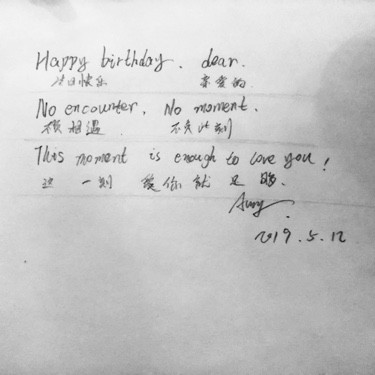 Happy birthday. dear.
生日快乐 亲爱的.
No encounter, No moment.
不负相遇. 不负此刻
This moment is enough to love you!
这一刻 爱你就足够.
2019.5.12